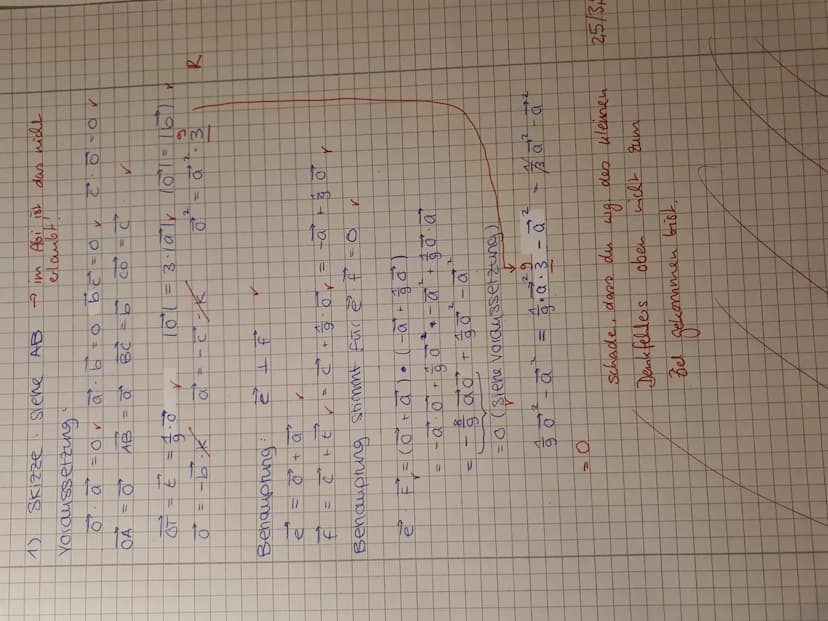 1) Skizze: siehe AB → im Abi ist das nicht erlaubt!
Voraussetzung:
o⃗ · a⃗ = 0 a⃗ · b⃗ = 0 b⃗ c⃗ = 0 c⃗ · o⃗ = 0
OA⃗ = o⃗ AB⃗ = a⃗ BC⃗ = b⃗ CO⃗ = c⃗
OT⃗ = t⃗ = 1/9 · o⃗ |o⃗| = 3 · |a⃗| |o⃗| = |b⃗|
o⃗ = -b⃗ a⃗ = -c⃗ o⃗² = a⃗² · 3 9 R
Behauptung: e⃗ ⊥ f⃗
e⃗ = o⃗ + a⃗
f⃗ = c⃗ + t⃗ = c⃗ + 1/9 · o⃗ = -a⃗ + 1/9 o⃗
Behauptung stimmt für: e⃗ f⃗ = 0
e⃗ · f⃗ = (o⃗ + a⃗) · (-a⃗ + 1/9 o⃗)
= -a⃗ o⃗ + 1/9 o⃗² - a⃗² + 1/9 o⃗ · a⃗
= -8/9 a⃗ o⃗ + 1/9 o⃗² - a⃗²
= 0 (siehe Voraussetzung)
1/9 o⃗² - a⃗² = 1/9 · a⃗² · 3 9 - a⃗² = 1/3 a⃗² - a⃗²
= 0
Schade, dass du wg des kleinen
Denkfehlers oben nicht zum
Ziel gekommen bist.